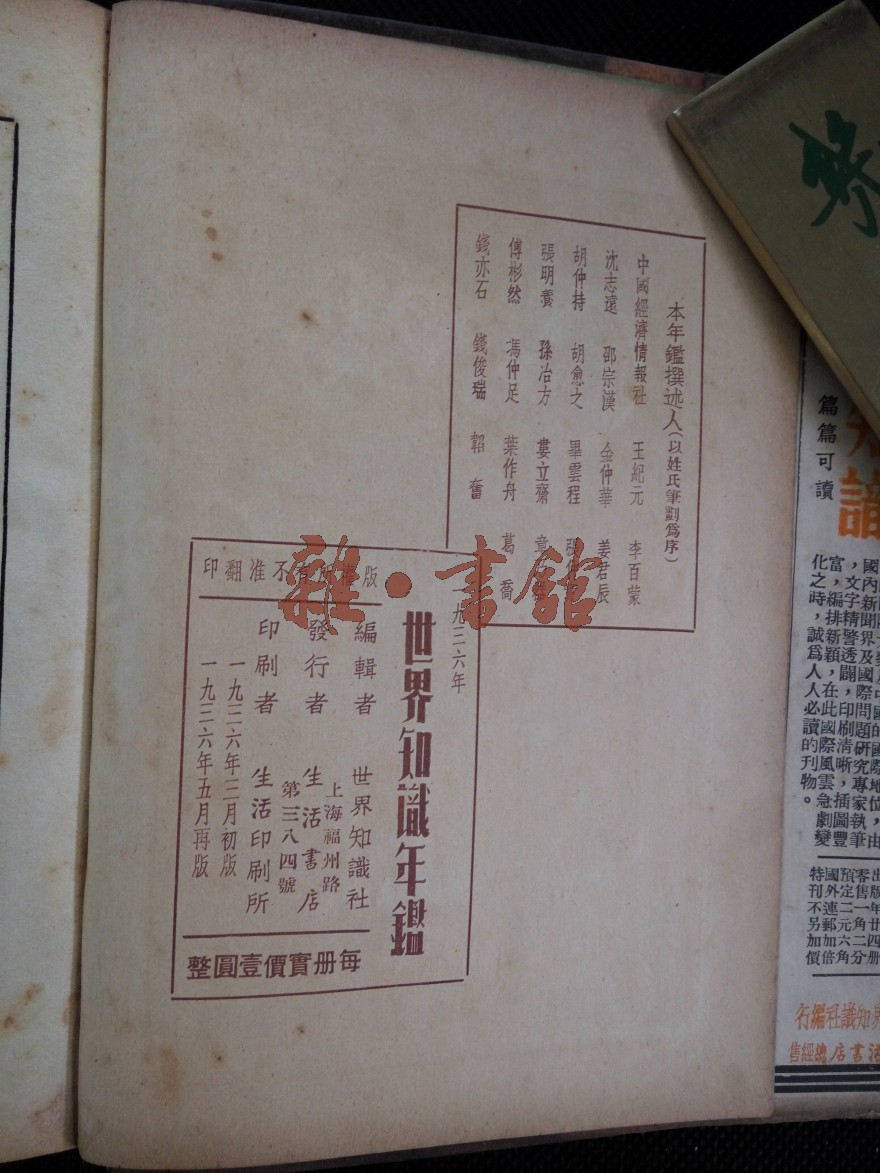 本年鑑撰述人(以姓氏筆劃爲序)
中國經濟情報社 王紀元 李百蒙
沈志遠 邵宗漢 金仲華 姜君辰
胡仲持 胡愈之 畢雲程
張明養 孫冶方 婁立齋
傅彬然 馮仲足 葉作舟 葛喬
錢亦石 錢俊瑞 韜奮
一九三六年
世界知識年鑑
編輯者 世界知識社
上海福州路
發行者 生活書店
第三八四號
印刷者 生活印刷所
一九三六年三月初版
一九三六年五月再版
版權所有不准翻印
每册實價壹圓整
雜·書館
篇篇可讀
識
國內新聞界及國際問題研究專家執筆
,文字精警透闢,印刷清晰,插圖豐
富,編排新穎,在此國際風雲急劇變
化之時,誠爲人人必讀的刊物。
出版 年廿四册
零售 一角二分
預定 二元六角
國外連郵加倍
特刊不另加價
界知識社編行
活書店總經售